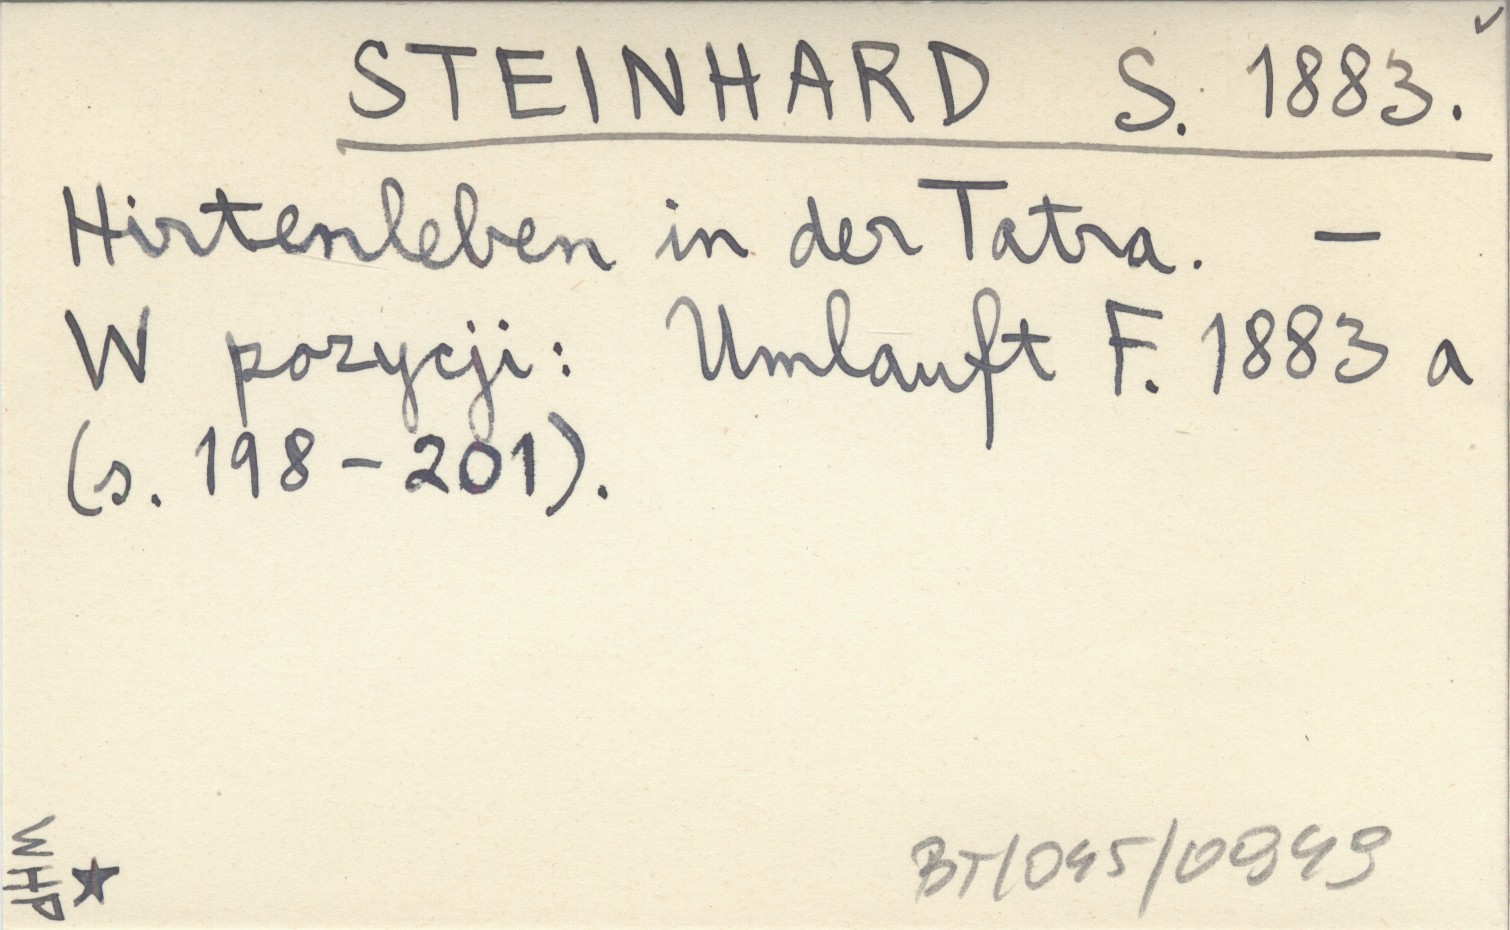 STEINHARD S. 1883.
Hirtenleben in der Tatra. —
W pozycji: Umlauft F. 1883 a
(s. 198-201).
WHP
BT/045/0949